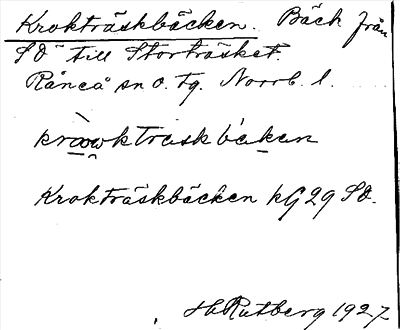 Krokträskbäcken. Bäck från
SO till Storträsket.
Råneå sn o. tg. Norrb. l.
Krokträskbäcken kG 29 SO.
HRutberg 1927